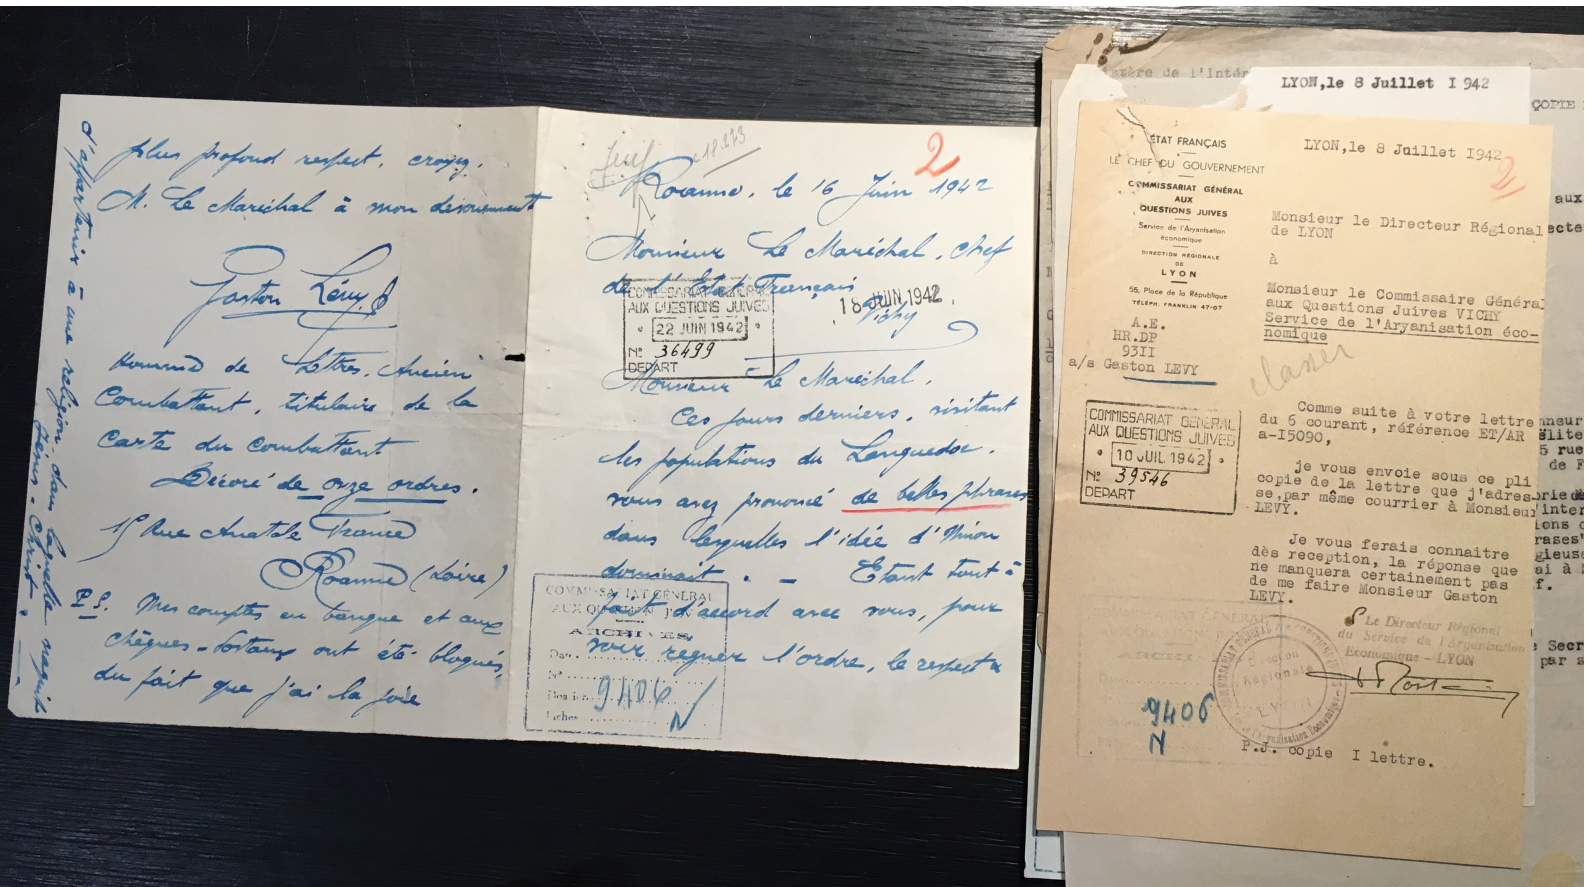 plus profond respect, croyez,
M. Le Maréchal à mon dévouement
Gaston Lévy
Homme de Lettres, Ancien
Combattant, titulaire de la
Carte du Combattant
Décoré de onze ordres.
Rue Anatole France
Roanne (Loire)
P.S. Mes comptes en banque et aux
chèques-Postaux ont été bloqués,
du fait que j'ai la joie
d'appartenir - à une religion - dans laquelle naquit
Jésus-Christ.
Juif
18.273
2
Roanne, le 16 Juin 1942
Monsieur Le Maréchal, Chef
de l'Etat Français
Vichy
18 JUIN 1942
COMMISSARIAT GENERAL
AUX QUESTIONS JUIVES
22 JUIN 1942
N° 36499
DEPART
Monsieur Le Maréchal,
Ces jours derniers, visitant
les populations du Languedoc,
vous avez prononcé de belles phrases
dans lesquelles l'idée d'Union
dominait. - Etant tout à
fait d'accord avec vous, pour
voir régner l'ordre, le respect
COMMISSARIAT GÉNÉRAL
AUX QUESTIONS JUIVES
ARCHIVES
Date
N°
9406
Fiches
N
LYON,le 8 Juillet I942
COPIE
ÉTAT FRANÇAIS
LE CHEF DU GOUVERNEMENT
COMMISSARIAT GÉNÉRAL
AUX
QUESTIONS JUIVES
Service de l'Aryanisation
économique
DIRECTION RÉGIONALE
DE
LYON
55, Place de la République
TÉLÉPH. FRANKLIN 47-07
A.E.
HR.DP
93II
a/s Gaston LEVY
LYON,le 8 Juillet I942
2
Monsieur le Directeur Régional
de LYON
à
Monsieur le Commissaire Général
aux Questions Juives VICHY
Service de l'Aryanisation éco-
nomique
classer
COMMISSARIAT GENERAL
AUX QUESTIONS JUIVES
10 JUIL 1942
N° 39546
DEPART
Comme suite à votre lettre
du 6 courant, référence ET/AR
a-I5090,
je vous envoie sous ce pli
copie de la lettre que j'adres-
se,par même courrier à Monsieur
LEVY.
Je vous ferais connaitre
dès reception, la réponse que
ne manquera certainement pas
de me faire Monsieur Gaston
LEVY.
Le Directeur Régional
du Service de l'Aryanisation
Economique - LYON
Direction
Régionale
LYON
9406
N
P.J. copie I lettre.